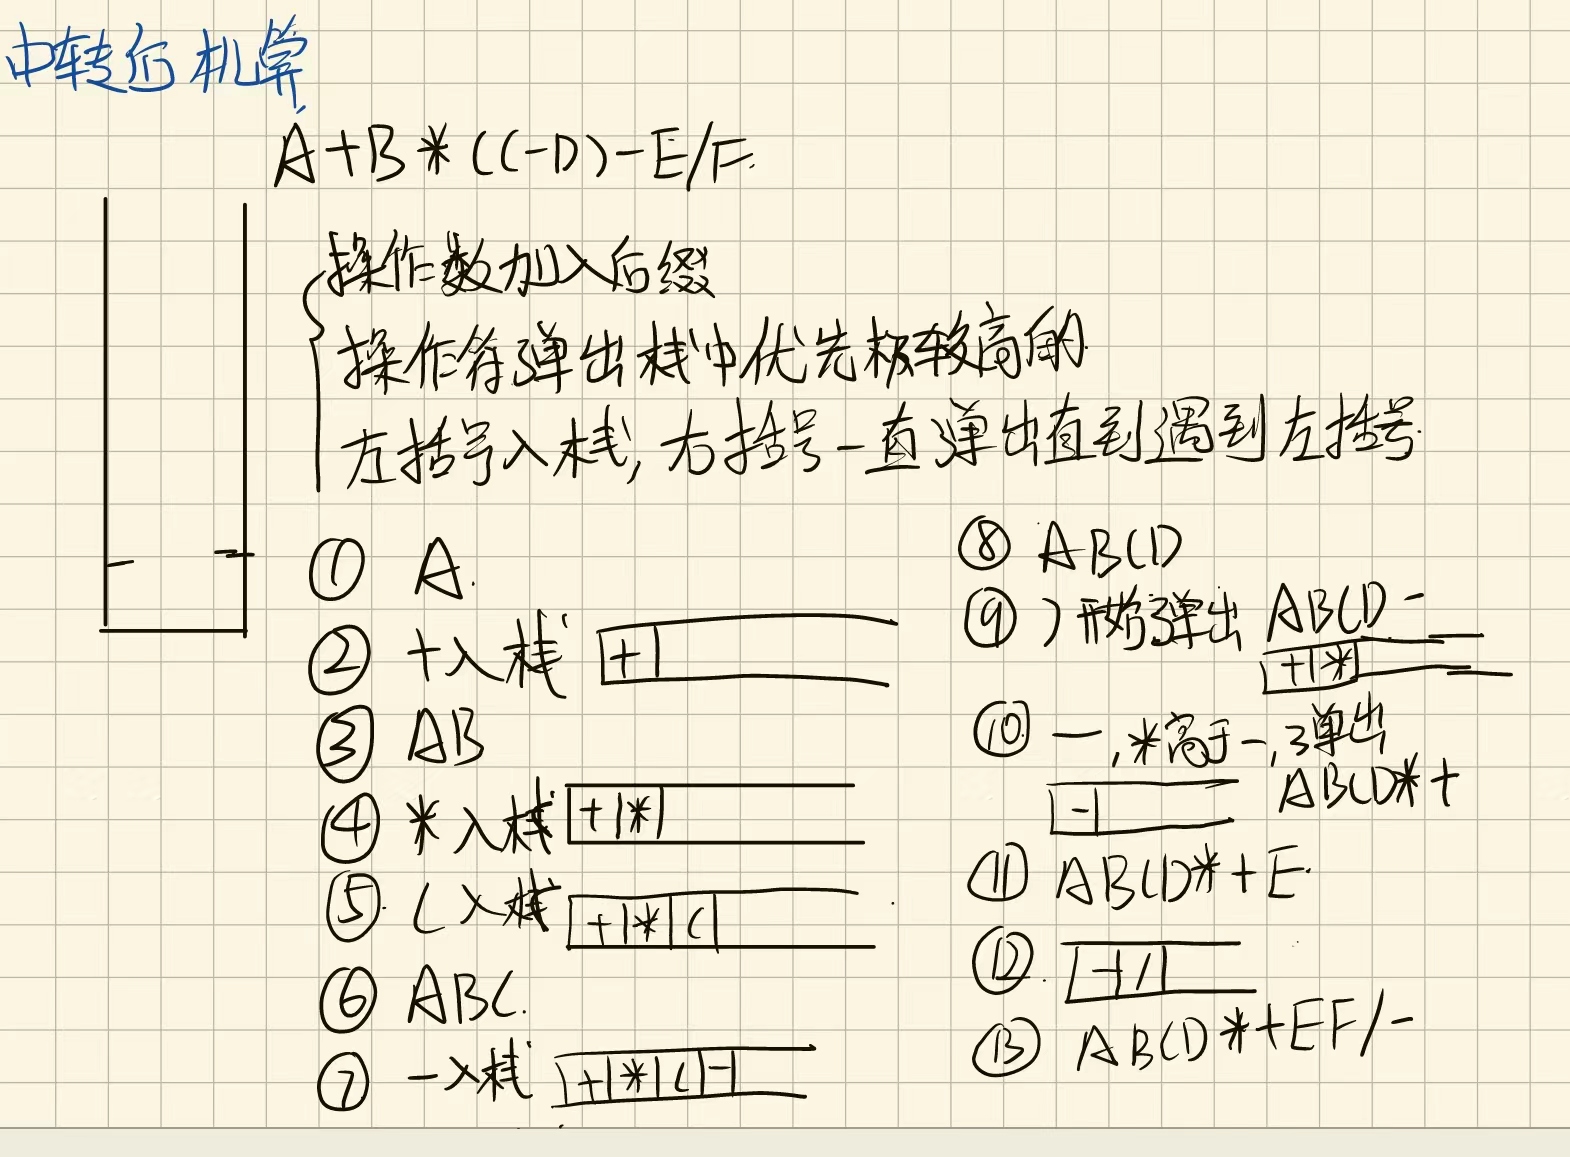 中转后 机算
A+B*((-D)-E/F.
操作数加入后缀
操作符弹出栈中优先极较高的.
左括号入栈, 右括号一直弹出直到遇到左括号.
① A.
② +入栈 +|
③ AB
④ *入栈 +|*|
⑤ (入栈 +|*|(|
⑥ ABC.
⑦ -入栈 +|*|(|-|
⑧ ABCD
⑨ )开始弹出 ABCD-
+|*|
⑩ -, *高于-, 弹出
-| ABCD*+
⑪ ABCD*+E.
⑫ -|/|
⑬ ABCD*+EF/-